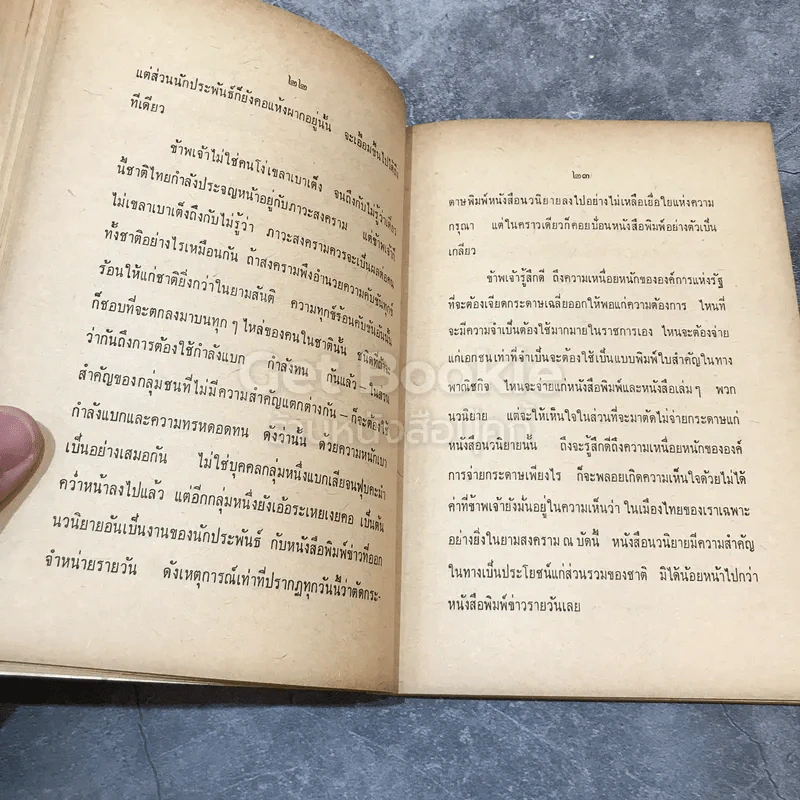 ๒๒
แต่ส่วนนักประพันธ์ก็ยังคอแห้งผากอยู่นั้น จะเอื้อมขึ้นไปได้
ทีเดียว
ข้าพเจ้าไม่ใช่คนโง่เขลาเบาเต็ง จนถึงกับไม่รู้ว่าเดี๋ยว
นี้ชาติไทยกำลังประจญหน้าอยู่กับภาวะสงคราม แต่ข้าพเจ้าก็
ไม่เขลาเบาเต็งถึงกับไม่รู้ว่า ภาวะสงครามควรจะเป็นผลต่อคน
ทั้งชาติอย่างไรเหมือนกัน ถ้าสงครามพึงอำนวยความคับขันทุกข์
ร้อนให้แก่ชาติยิ่งกว่าในยามสันติ ความทุกข์ร้อนคับขันอันนั้น
ก็ชอบที่จะตกลงมาบนทุก ๆ ไหล่ของคนในชาตินั้น ชนิดที่
ว่ากันถึงการต้องใช้กำลังแบก กำลังทน กันแล้ว – ในส่วน
สำคัญของกลุ่มชนที่ไม่มีความสำคัญแตกต่างกัน – ก็จะต้องใช้
กำลังแบกและความทรหดอดทน ดังว่านั้น ด้วยความหนักเบา
เป็นอย่างเสมอกัน ไม่ใช่บุคคลกลุ่มหนึ่งแบกเสียจนฟุบคะมำ
คว่ำหน้าลงไปแล้ว แต่อีกกลุ่มหนึ่งยังเอ้อระเหยเงยคอ เป็นต้น
นวนิยายอันเป็นงานของนักประพันธ์ กับหนังสือพิมพ์ข่าวที่ออก
จำหน่ายรายวัน ดังเหตุการณ์เท่าที่ปรากฏทุกวันนี้ว่าตัดกระ-
๒๓
ดาษพิมพ์หนังสือนวนิยายลงไปอย่างไม่เหลือเยื่อใยแห่งความ
กรุณา แต่ในคราวเดียวก็คอยป้อนหนังสือพิมพ์อย่างตัวเป็น
เกลียว
ข้าพเจ้ารู้สึกดี ถึงความเหนื่อยหนักขององค์การแห่งรัฐ
ที่จะต้องเจียดกระดาษเฉลี่ยออกให้พอแก่ความต้องการ ไหนที่
จะมีความจำเป็นต้องใช้มากมายในราชการเอง ไหนจะต้องจ่าย
แก่เอกชนเท่าที่จำเป็นจะต้องใช้เป็นแบบพิมพ์ใบสำคัญในทาง
พาณิชกิจ ไหนจะจ่ายแก่หนังสือพิมพ์และหนังสือเล่ม ๆ พวก
นวนิยาย แต่จะให้เห็นใจในส่วนที่จะมาตัดไม่จ่ายกระดาษแก่
หนังสือนวนิยายนั้น ถึงจะรู้สึกดีถึงความเหนื่อยหนักขององค์
การจ่ายกระดาษเพียงไร ก็จะพลอยเกิดความเห็นใจด้วยไม่ได้
ค่าที่ข้าพเจ้ายังมั่นอยู่ในความเห็นว่า ในเมืองไทยของเราเฉพาะ
อย่างยิ่งในยามสงคราม ณ บัดนี้ หนังสือนวนิยายมีความสำคัญ
ในทางเป็นประโยชน์แก่ส่วนรวมของชาติ มิได้น้อยหน้าไปกว่า
หนังสือพิมพ์ข่าวรายวันเลย
Get Bookie